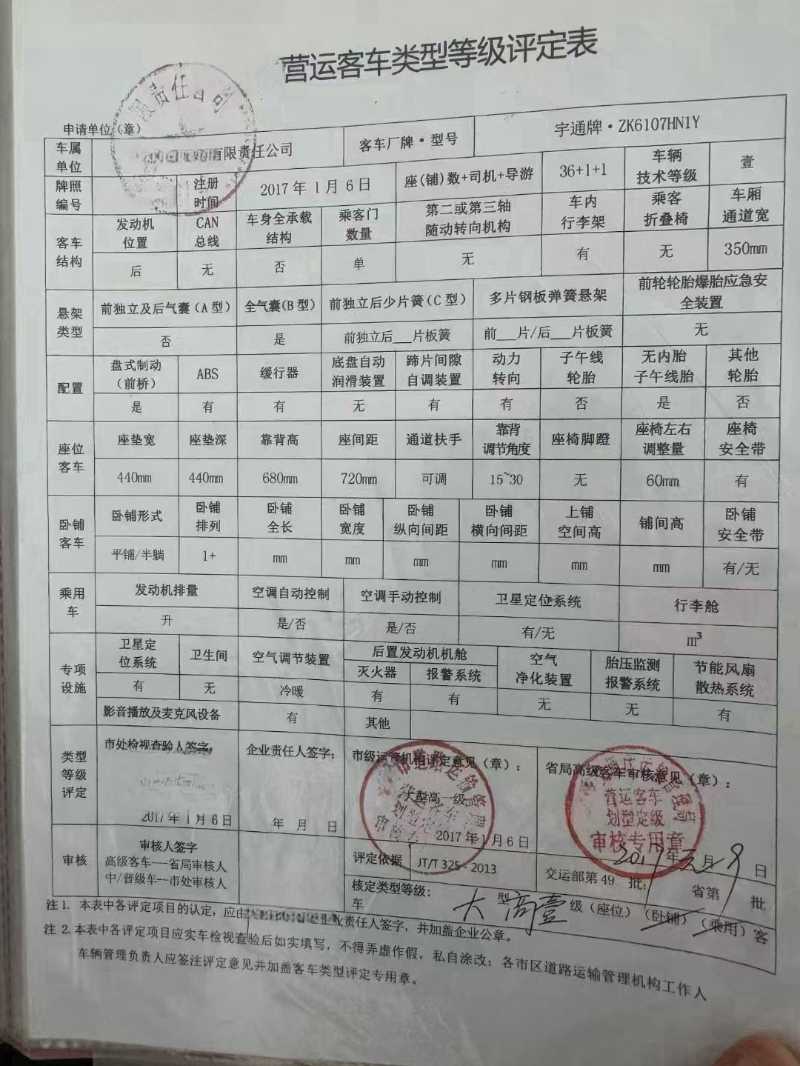 营运客车类型等级评定表
申请单位(章)
限责任公司
车属单位 有限责任公司 客车厂牌·型号 宇通牌·ZK6107HN1Y
牌照编号 注册时间 2017年1月6日 座(铺)数+司机+导游 36+1+1 车辆技术等级 壹
客车结构 发动机位置 CAN总线 车身全承载结构 乘客门数量 第二或第三轴随动转向机构 车内行李架 乘客折叠椅 车厢通道宽
后 无 否 单 无 有 无 350mm
悬架类型 前独立及后气囊(A型) 全气囊(B型) 前独立后少片簧(C型) 多片钢板弹簧悬架 前轮轮胎爆胎应急安全装置
否 是 前独立后__片板簧 前__片/后__片板簧 无
配置 盘式制动(前桥) ABS 缓行器 底盘自动润滑装置 蹄片间隙自调装置 动力转向 子午线轮胎 无内胎子午线胎 其他轮胎
是 有 有 无 有 有 否 是 否
座位客车 座垫宽 座垫深 靠背高 座间距 通道扶手 靠背调节角度 座椅脚蹬 座椅左右调整量 座椅安全带
440mm 440mm 680mm 720mm 可调 15~30 无 60mm 有
卧铺客车 卧铺形式 卧铺排列 卧铺全长 卧铺宽度 卧铺纵向间距 卧铺横向间距 上铺空间高 铺间高 卧铺安全带
平铺/半躺 1+ mm mm mm mm mm mm 有/无
乘用车 发动机排量 空调自动控制 空调手动控制 卫星定位系统 行李舱
升 是/否 是/否 有/无 m³
专项设施 卫星定位系统 卫生间 空气调节装置 后置发动机机舱 空气净化装置 胎压监测报警系统 节能风扇散热系统
灭火器 报警系统
有 无 冷暖 有 有 无 无 有
影音播放及麦克风设备 有 其他
类型等级评定 市处检视查验人签字: 企业责任人签字: 市级运管机构评定意见(章): 省局高级客车审核意见(章):
大型高一级
营运客车
划型定级
审核专用章
2017年1月6日 年 月 日 2017年1月6日 2017年元月9日
审核 审核人签字 高级客车--省局审核人 中/普级车--市处审核人
评定依据 JT/T 325-2013 交运部第49批: 省第 批
核定类型等级: 大型高壹级(座位)(卧铺)(乘用)客车
注1. 本表中各评定项目的认定,应由 责任人签字,并加盖企业公章。
注2. 本表中各评定项目应实车检视查验后如实填写,不得弄虚作假,私自涂改;各市区道路运输管理机构工作人
车辆管理负责人应签注评定意见并加盖客车类型评定专用章。